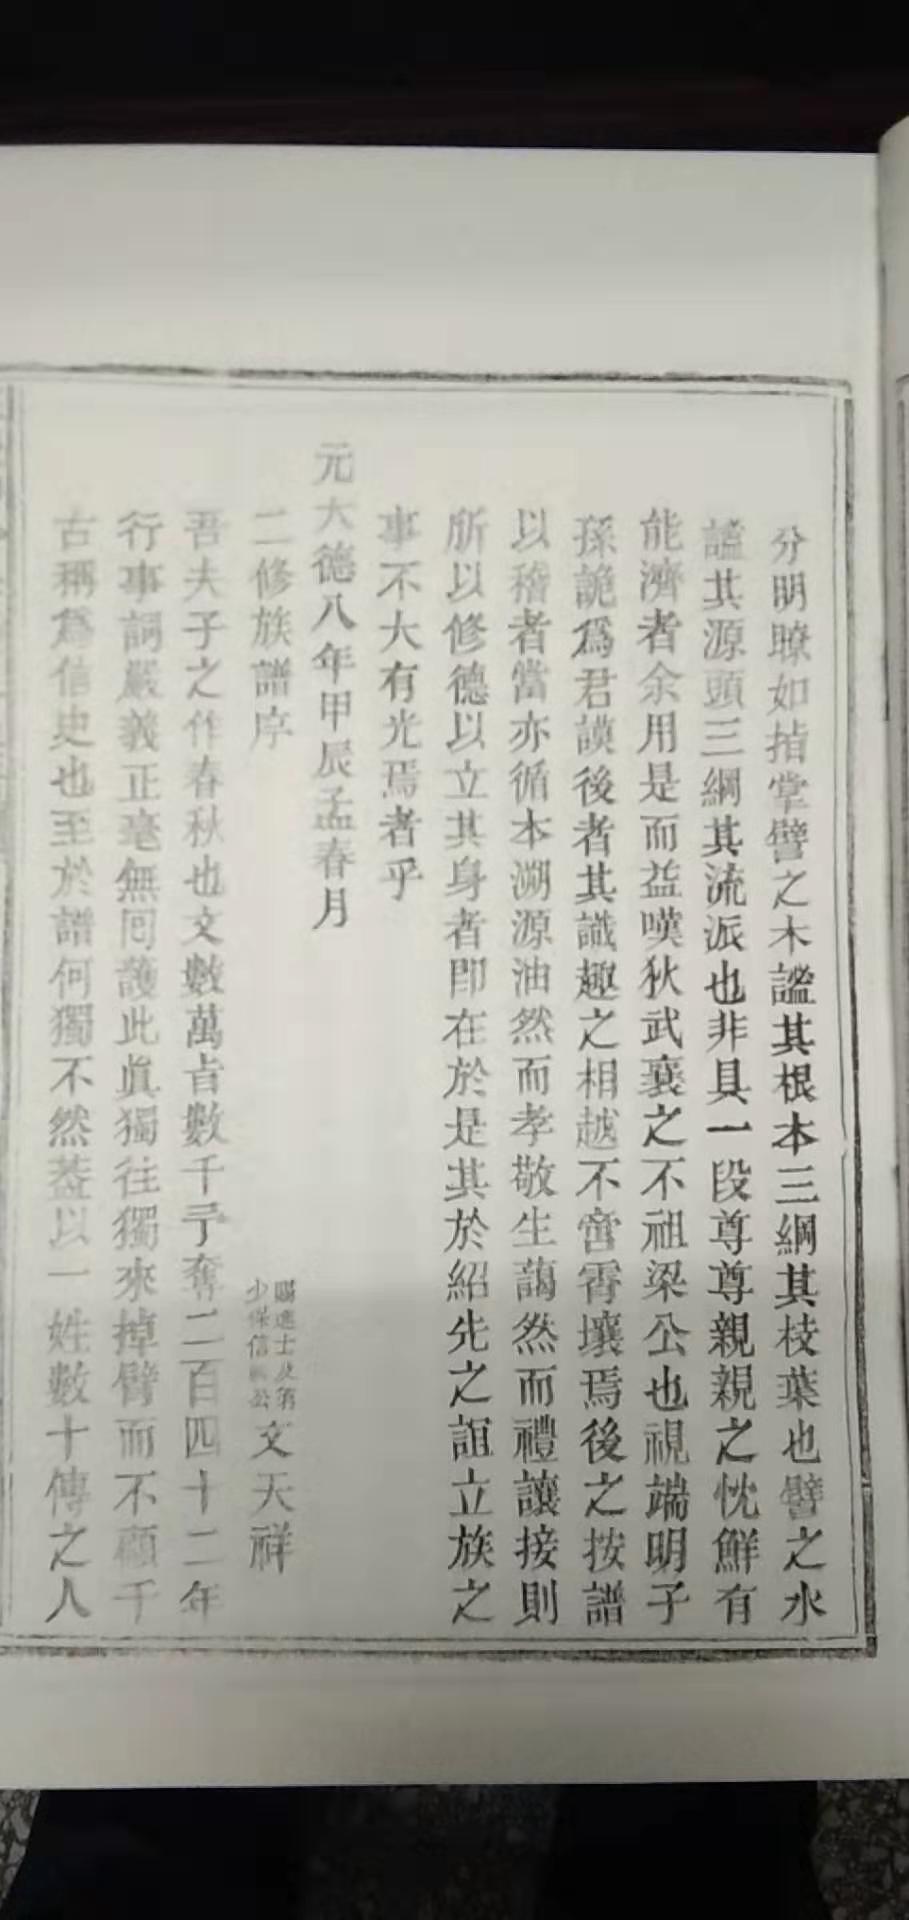 分明瞭如指掌譬之木謐其根本三綱其枝葉也譬之水
謐其源頭三綱其流派也非具一段尊尊親親之忱鮮有
能濟者余用是而益嘆狄武襄之不祖梁公也視端明子
孫詭爲君謨後者其識趣之相越不啻霄壤焉後之按譜
以稽者當亦循本溯源油然而孝敬生藹然而禮讓接則
所以修德以立其身者即在於是其於紹先之誼立族之
事不大有光焉者乎
元大德八年甲辰孟春月
二修族譜序
賜進士及第
少保信國公
文天祥
吾夫子之作春秋也文數萬㫖數千予奪二百四十二年
行事詞嚴義正毫無囘護此眞獨往獨來掉臂而不顧千
古稱爲信史也至於譜何獨不然蓋以一姓數十傳之人